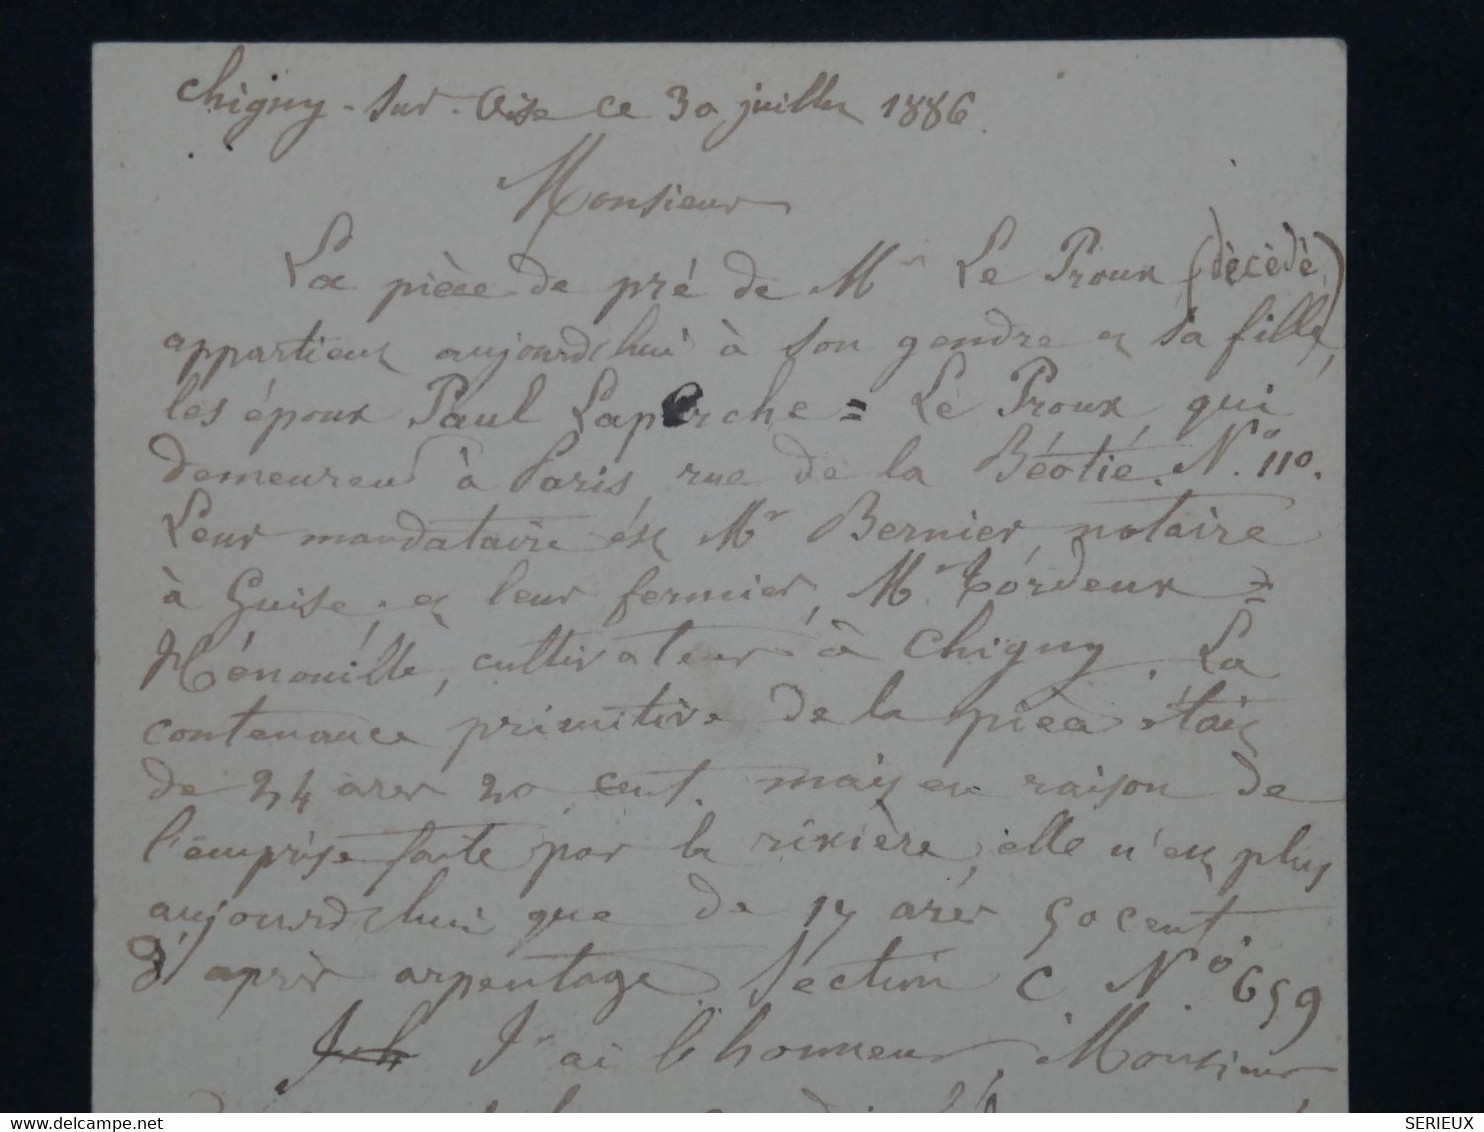 Chigny-sur-Oise ce 30 juillet 1886.
Monsieur
La pièce de pré de Mr Le Proux (dècèdè)
appartient aujourd'hui à son gendre et sa fille,
les époux Paul Laperche = Le Proux, qui
demeurent à Paris, rue de la Béotie. No 110.
Leur mandataire ést Mr Bernier, notaire
à Guise, et leur fermier, Mr Tordeux =
Hénouille, cultivateur à Chigny. La
contenance primitive de la pièce était
de 24 ares 20 cent. mais en raison de
l'emprise faite par la rivière, elle n'est plus
aujourd'hui que de 17 ares 50 cent.
d'après arpentage. Section C No 659
J'ai l'honneur, Monsieur
SERIEUX
delcampe.net